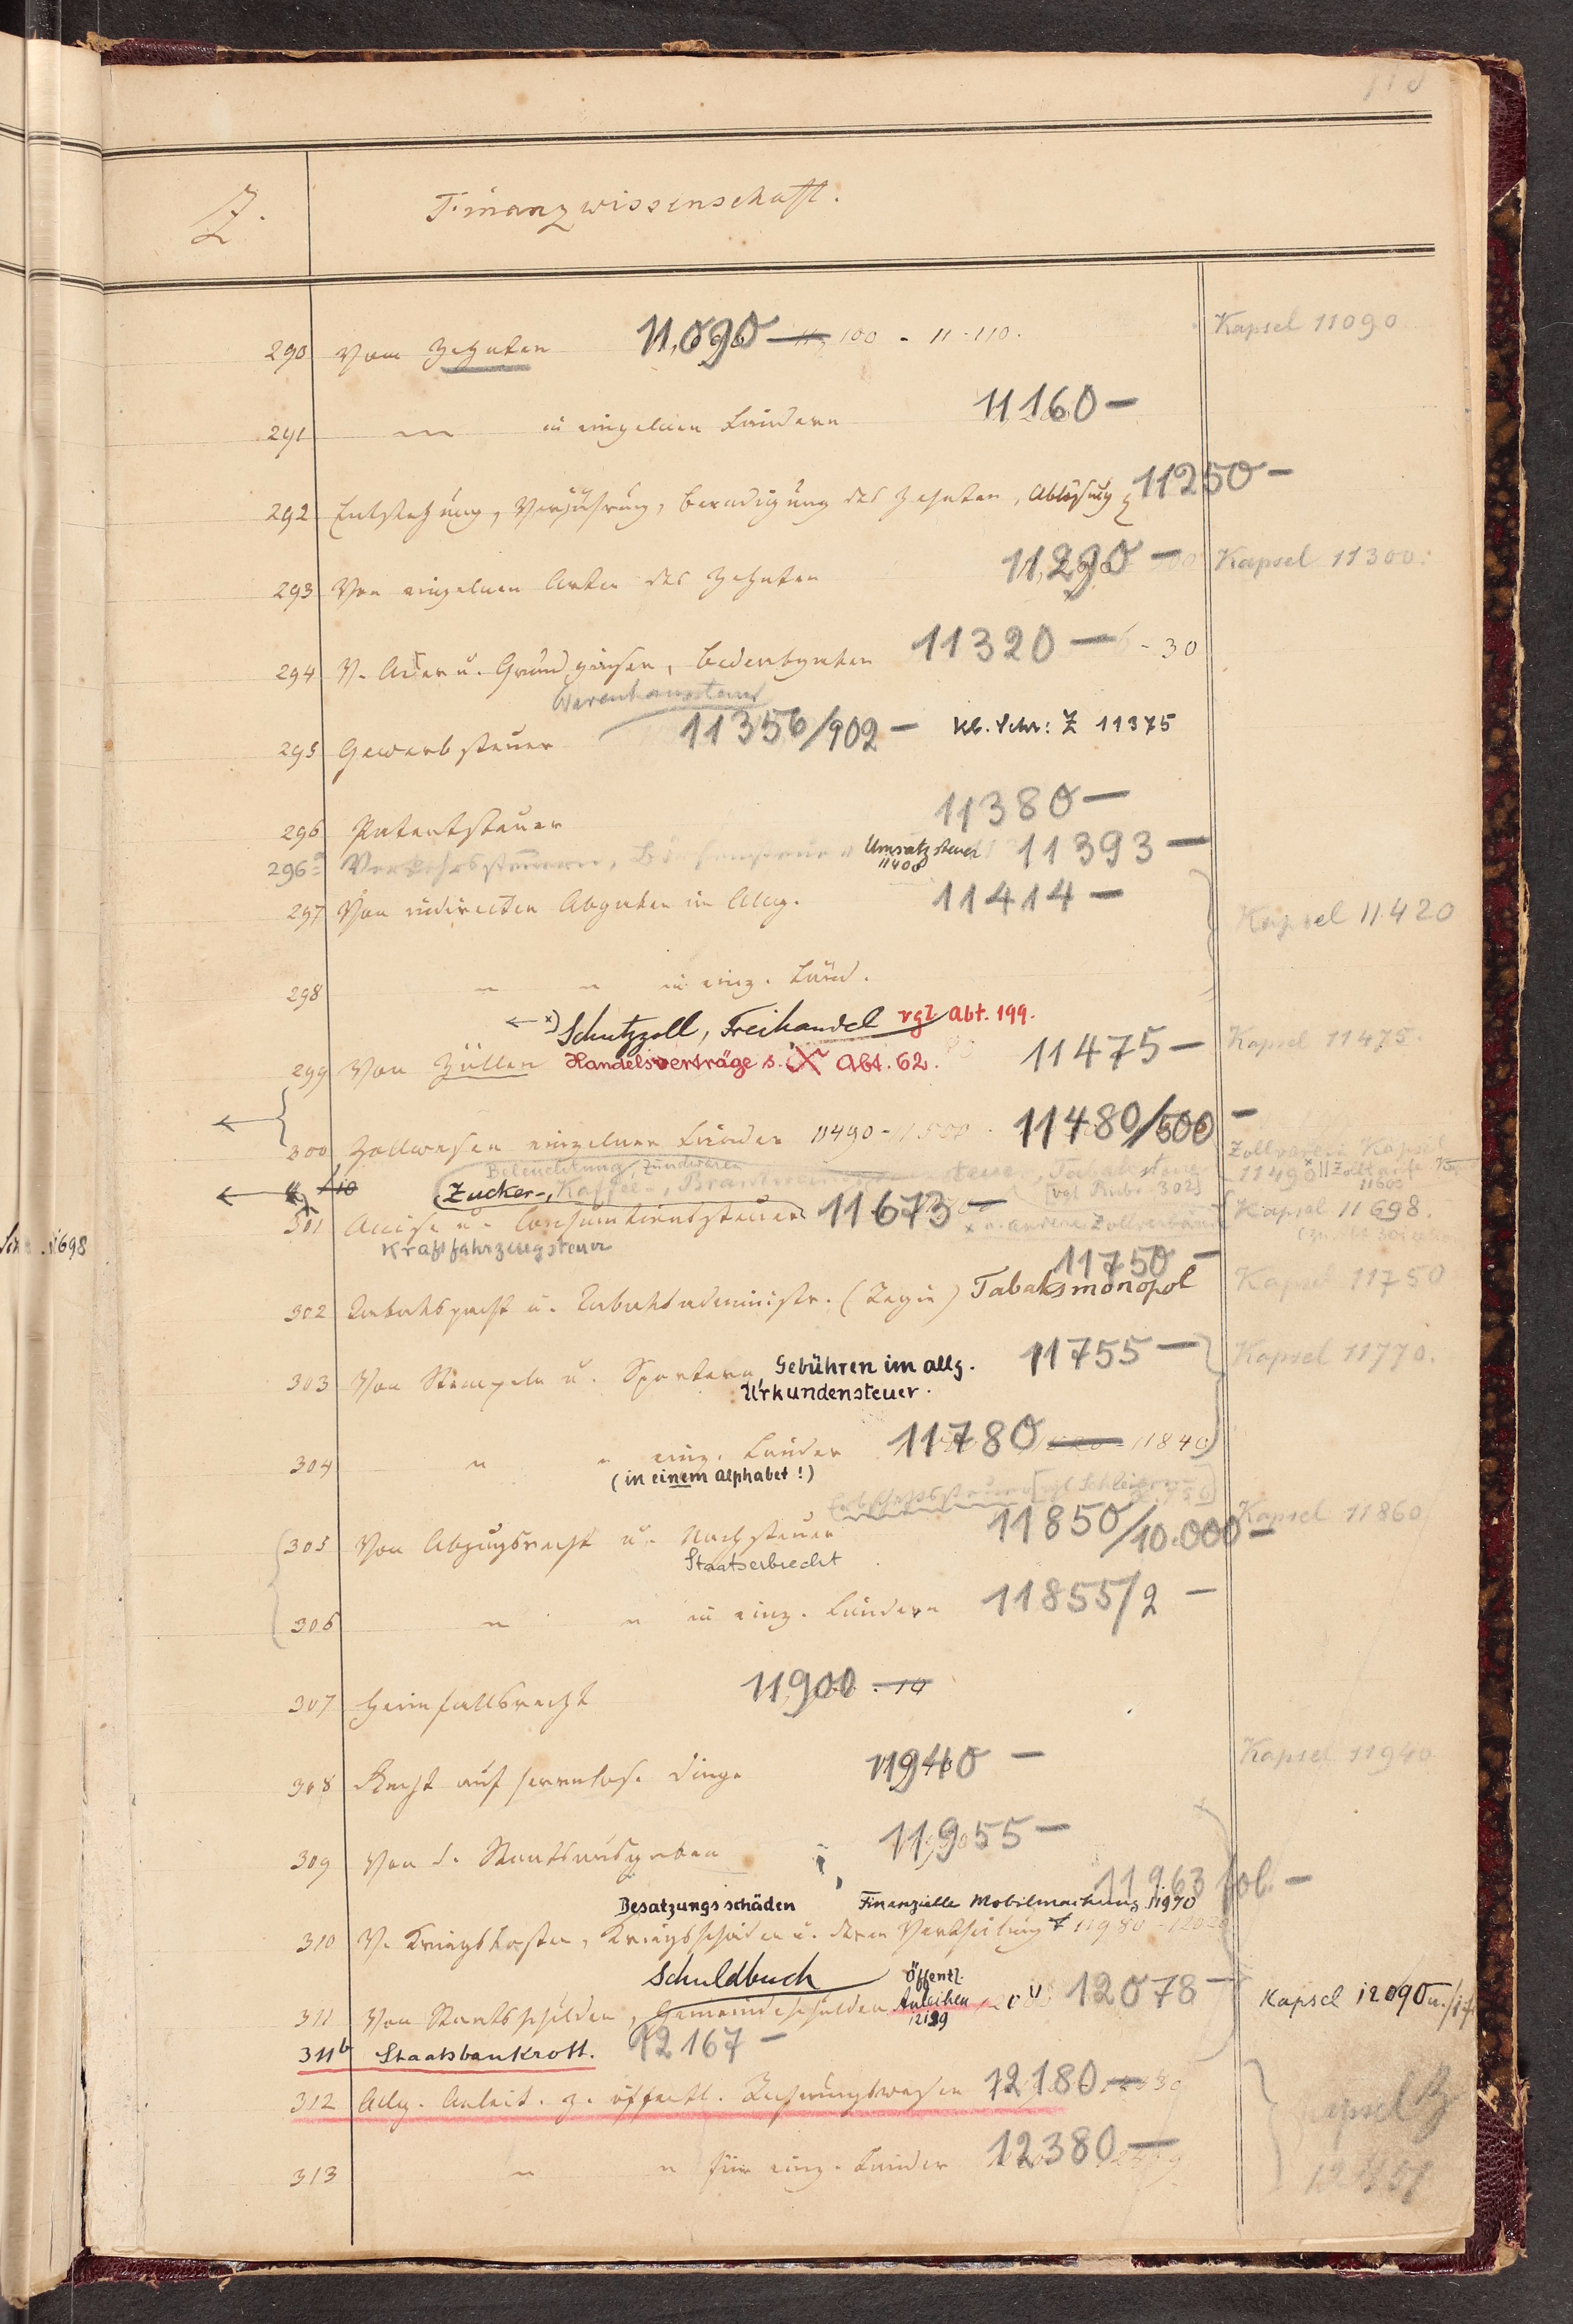 Z.
Finanzwissenschaft.
290 Vom Zehnten 11,090 — 100 - 11-110. Kapsel 11090
291 " in einzelnen Ländern 11160 —
292 Entstehung, Verjährung, Beendigung des Zehnten, Ablösung 11250 —
293 Von einzelnen Arten des Zehnten 11,290 — Kapsel 11300.
294 V. Acker u. Grundzinsen, 11320 — - 30
Warenhaussteuer
295 Gewerbsteuer 11356/902 — Kl. Schr: Z 11375
296 Patentsteuer 11380 —
296a Verkehrssteuern, Börsensteuer Umsatzsteuer 11393 —
11400
297 Von indirecten Abgaben im Allg. 11414 — Kapsel 11420
298 " " in einz. Länd.
Schutzzoll, Freihandel vgl Abt. 199.
299 Von Zöllen Handelsverträge s. Abt. 62. 11475 — Kapsel 11475.
300 Zollwesen einzelner Länder 11490 - 11480/500 —
Zollverein Kapsel
Beleuchtung, Zündwaren
11490 || Zolltarife
11600
Zucker-, Kaffee-, Tabaksteuer
[vgl Rubr. 302]
301 Accise u. Consumtionssteuer 11673 — Kapsel 11698.
x u. andere Zollverbände
Kraftfahrzeugsteuer
11750 —
302 Tabakspacht u. Tabaksadministr. (Regie) Tabaksmonopol Kapsel 11750
303 Von Stempeln u. Sporteln, Gebühren im allg. 11755 — Kapsel 11770.
Urkundensteuer.
304 " " einz. Länder 11780 11840
(in einem Alphabet!)
Erbschaftssteuer [vgl
305 Von Abzugsrecht u. Nachsteuer 11850/10.000 — Kapsel 11860
Staatserbrecht
306 " " in einz. Ländern 11855/2 —
307 Heimfallsrecht 11900 - 10
308 Recht auf herrenlose Dinge 11940 — Kapsel 11940
309 Von d. Staatsausgaben 11955 —
11963 fol. —
Besatzungsschäden Finanzielle Mobilmachung 11970
310 V. Kriegskosten, Kriegsschäden u. deren Vertheilung 11980 -
Schuldbuch Öffentl.
311 Von Staatsschulden, Gemeindeschulden Anleihen 12078 — Kapsel 12090
12129
311b Staatsbankrott. 12167 —
312 Allg. Anleit. z. öffentl. Rechnungswesen 12180 —
313 " " für einz. Länder 12380 —
Kapsel Z